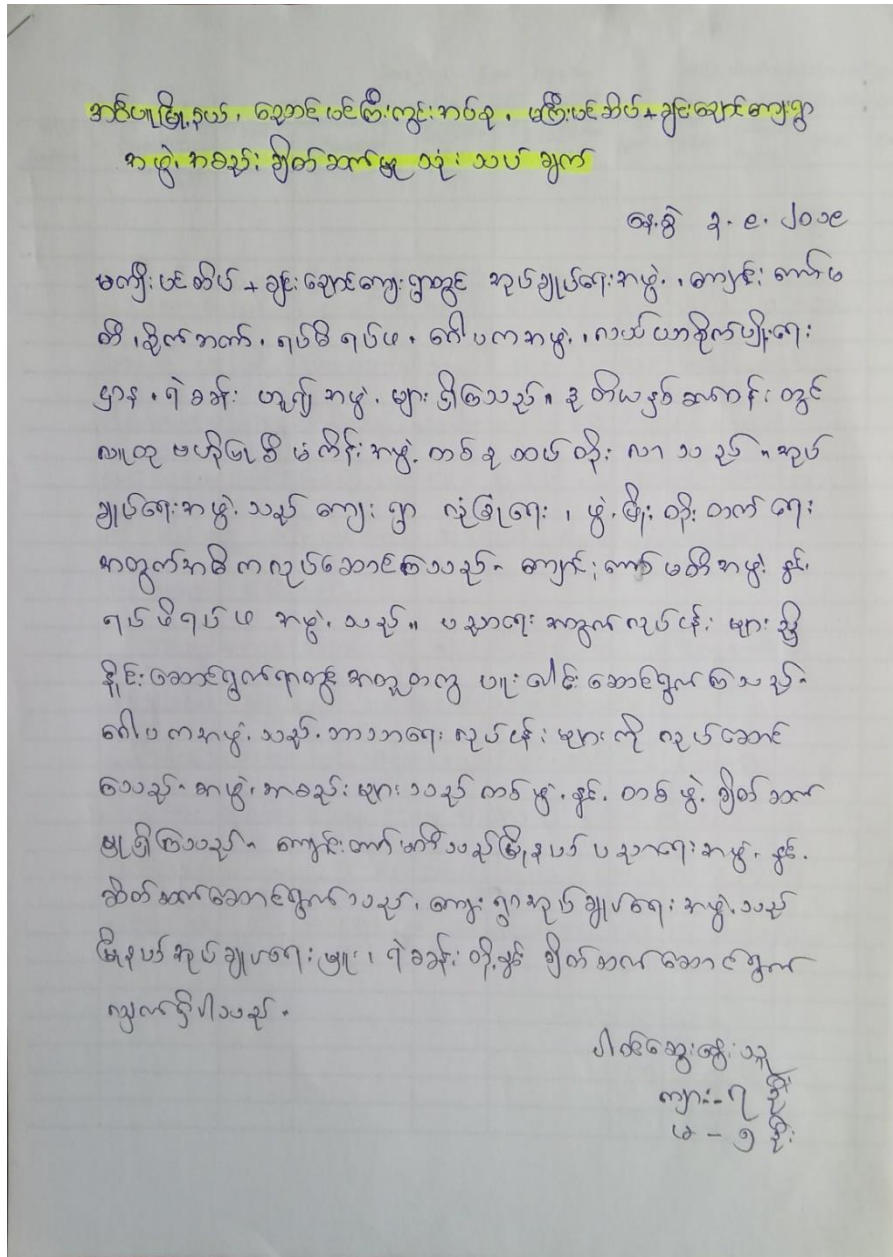 အမ်ပြုမြို့နယ်၊ ညောင်ပင်ကြီးကွင်းအုပ်စု၊ မကြီးပင်အိပ်+ချင်းချောင်ကျေးရွာ
အဖွဲ့အစည်းချိတ်ဆက်မှု သုံးသပ်ချက်
နေ့စွဲ ၃.၉.၂၀၁၉
မကြီးပင်အိပ်+ချင်းချောင်ကျေးရွာတွင် အုပ်ချုပ်ရေးအဖွဲ့၊ ကျောင်းကော်မ
တီ၊ စိုက်ဘက်၊ ရပ်မိရပ်ဖ၊ ဂေါပကအဖွဲ့၊ လယ်ယာစိုက်ပျိုးရေး
ဌာန၊ ရဲစခန်း ဟူ၍ အဖွဲ့များရှိကြသည်။ ဒုတိယနှစ်ဆယ်တန်းတွင်
လူထုဗဟိုပြုစီမံကိန်းအဖွဲ့ တစ်ခု ထပ်တိုးလာသည်။ အုပ်
ချုပ်ရေးအဖွဲ့သည် ကျေးရွာလုံခြုံရေး၊ ဖွံ့ဖြိုးတိုးတက်ရေး
အတွက်အဓိကလုပ်ဆောင်ကြသည်။ ကျောင်းကော်မတီအဖွဲ့ နှင့်
ရပ်မိရပ်ဖ အဖွဲ့သည်။ ပညာရေးအတွက်လုပ်ငန်းများညှိ
နှိုင်းဆောင်ရွက်ရာတွင် အတူတကွ ပူးပေါင်းဆောင်ရွက်ကြသည်။
ဂေါပကအဖွဲ့သည် ဘာသာရေးလုပ်ငန်းများကို လုပ်ဆောင်
ကြသည်။ အဖွဲ့အစည်းများသည် တစ်ဖွဲ့နှင့် တစ်ဖွဲ့ ချိတ်ဆက်
မှုရှိကြသည်။ ကျောင်းကော်မတီသည်မြို့နယ်ပညာရေးအဖွဲ့နှင့်
ဆိတ်ဆက်ဆောင်ရွက်သည်၊ ကျေးရွာအုပ်ချုပ်ရေးအဖွဲ့သည်
မြို့နယ်အုပ်ချုပ်ရေးမှူး၊ ရဲစခန်းတို့နှင့် ချိတ်ဆက်ဆောင်ရွက်
လျက်ရှိပါသည်။
ပါဝင်ဆွေးနွေးသူ
ကျား-၇ ဦး
မ - ၅ ဦး